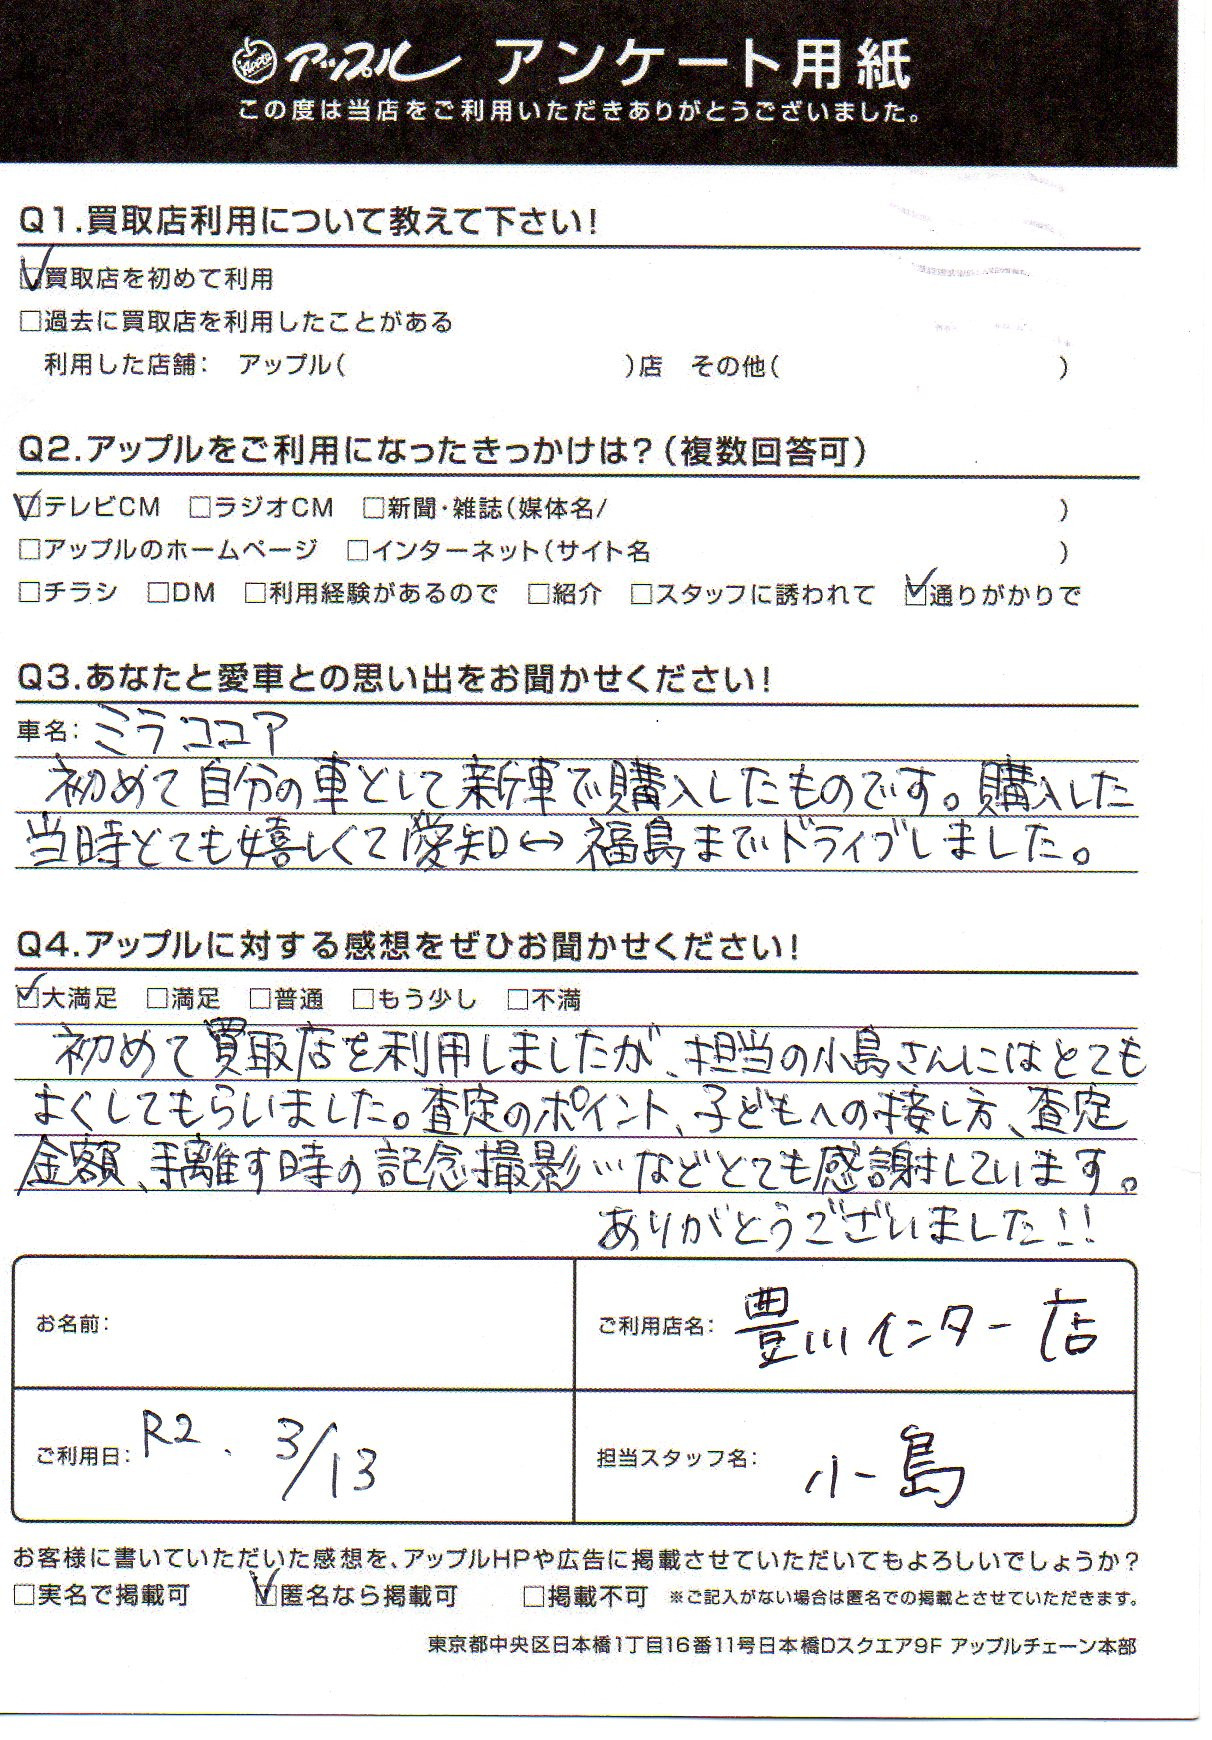 Apple アップル アンケート用紙
この度は当店をご利用いただきありがとうございました。
Q1.買取店利用について教えて下さい!
☑買取店を初めて利用
□過去に買取店を利用したことがある
利用した店舗: アップル( )店 その他( )
Q2.アップルをご利用になったきっかけは?(複数回答可)
☑テレビCM □ラジオCM □新聞・雑誌(媒体名/ )
□アップルのホームページ □インターネット(サイト名 )
□チラシ □DM □利用経験があるので □紹介 □スタッフに誘われて ☑通りがかりで
Q3.あなたと愛車との思い出をお聞かせください!
車名: ミラココア
初めて自分の車として新車で購入したものです。購入した
当時とても嬉しくて愛知↔福島までドライブしました。
Q4.アップルに対する感想をぜひお聞かせください!
☑大満足 □満足 □普通 □もう少し □不満
初めて買取店を利用しましたが、担当の小島さんにはとても
よくしてもらいました。査定のポイント、子どもへの接し方、査定
金額、手離す時の記念撮影…などとても感謝しています。
ありがとうございました!!
お名前:
ご利用店名: 豊川インター店
ご利用日: R2. 3/13
担当スタッフ名: 小島
お客様に書いていただいた感想を、アップルHPや広告に掲載させていただいてもよろしいでしょうか?
□実名で掲載可 ☑匿名なら掲載可 □掲載不可 ※ご記入がない場合は匿名での掲載とさせていただきます。
東京都中央区日本橋1丁目16番11号日本橋Dスクエア9F アップルチェーン本部